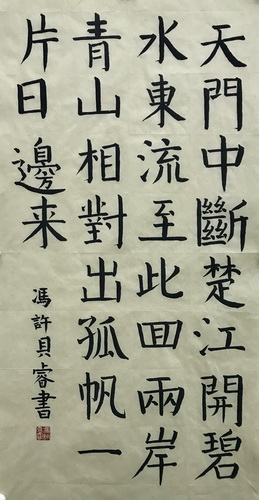 天門中斷楚江開碧
水東流至此回兩岸
青山相對出孤帆一
片日邊来
馮許貝睿書